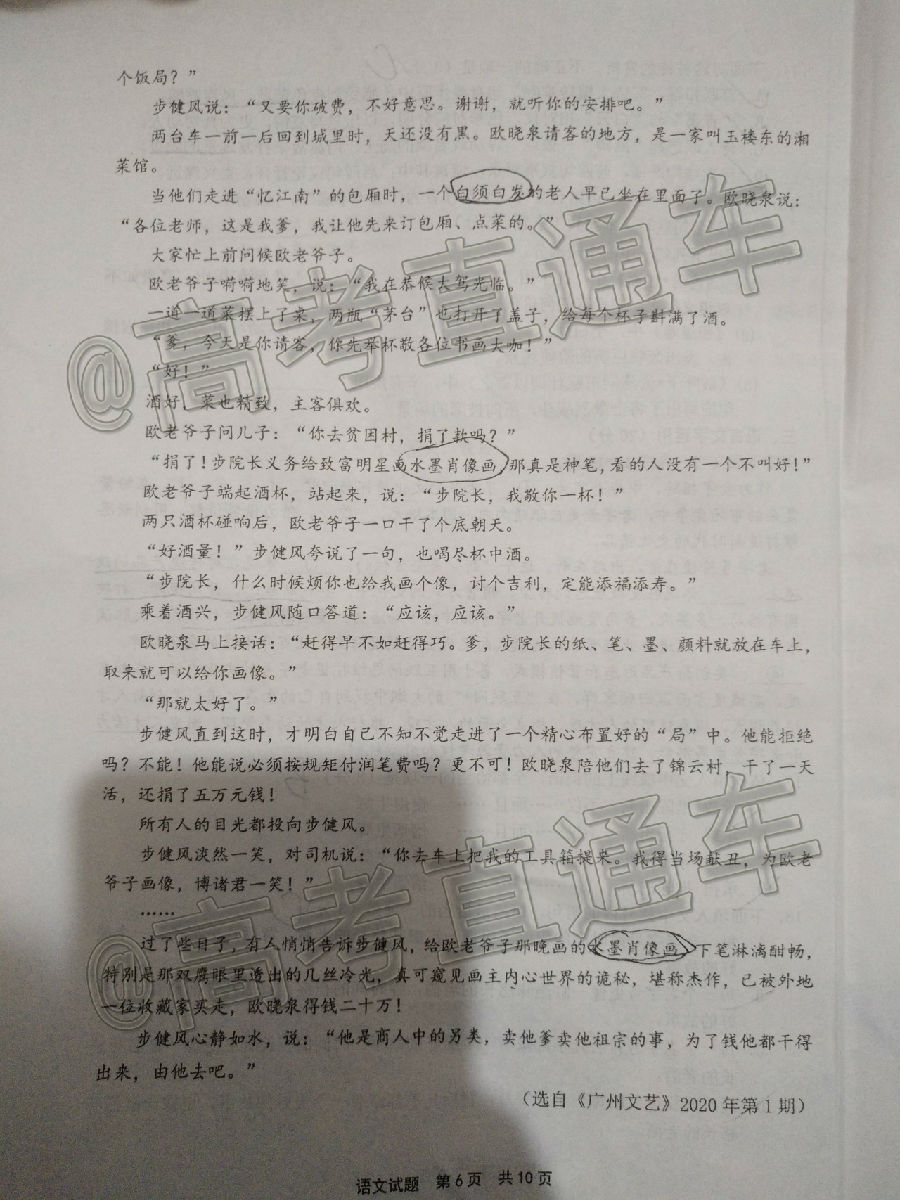 个饭局？”
步健风说：“又要你破费，不好意思。谢谢，就听你的安排吧。”
两台车一前一后回到城里时，天还没有黑。欧晓泉请客的地方，是一家叫玉楼东的湘
菜馆。
当他们走进“忆江南”的包厢时，一个白须白发的老人早已坐在里面了。欧晓泉说：
“各位老师，这是我爹，我让他先来订包厢、点菜的。”
大家忙上前问候欧老爷子。
欧老爷子嗬嗬地笑，说：“我在恭候大驾光临。”
一道一道菜摆上了桌，两瓶“茅台”也打开了盖子，给每个杯子斟满了酒。
“爹，今天是你请客，你先举杯敬各位书画大咖！”
“好！”
酒好，菜也精致，主客俱欢。
欧老爷子问儿子：“你去贫困村，捐了款吗？”
“捐了！步院长义务给致富明星画水墨肖像画，那真是神笔，看的人没有一个不叫好！”
欧老爷子端起酒杯，站起来，说：“步院长，我敬你一杯！”
两只酒杯碰响后，欧老爷子一口干了个底朝天。
“好酒量！”步健风夸说了一句，也喝尽杯中酒。
“步院长，什么时候烦你也给我画个像，讨个吉利，定能添福添寿。”
乘着酒兴，步健风随口答道：“应该，应该。”
欧晓泉马上接话：“赶得早不如赶得巧。爹，步院长的纸、笔、墨、颜料就放在车上，
取来就可以给你画像。”
“那就太好了。”
步健风直到这时，才明白自己不知不觉走进了一个精心布置好的“局”中。他能拒绝
吗？不能！他能说必须按规矩付润笔费吗？更不可！欧晓泉陪他们去了锦云村，干了一天
活，还捐了五万元钱！
所有人的目光都投向步健风。
步健风淡然一笑，对司机说：“你去车上把我的工具箱提来。我得当场献丑，为欧老
爷子画像，博诸君一笑！”
……
过了些日子，有人悄悄告诉步健风，给欧老爷子那晚画的水墨肖像画，下笔淋漓酣畅，
特别是那双鹰眼里透出的几丝冷光，真可窥见画主内心世界的诡秘，堪称杰作，已被外地
一位收藏家买走，欧晓泉得钱二十万！
步健风心静如水，说：“他是商人中的另类，卖他爹卖他祖宗的事，为了钱他都干得
出来，由他去吧。”
（选自《广州文艺》2020年第1期）
语文试题 第6页 共10页
@高考直通车
@高考直通车